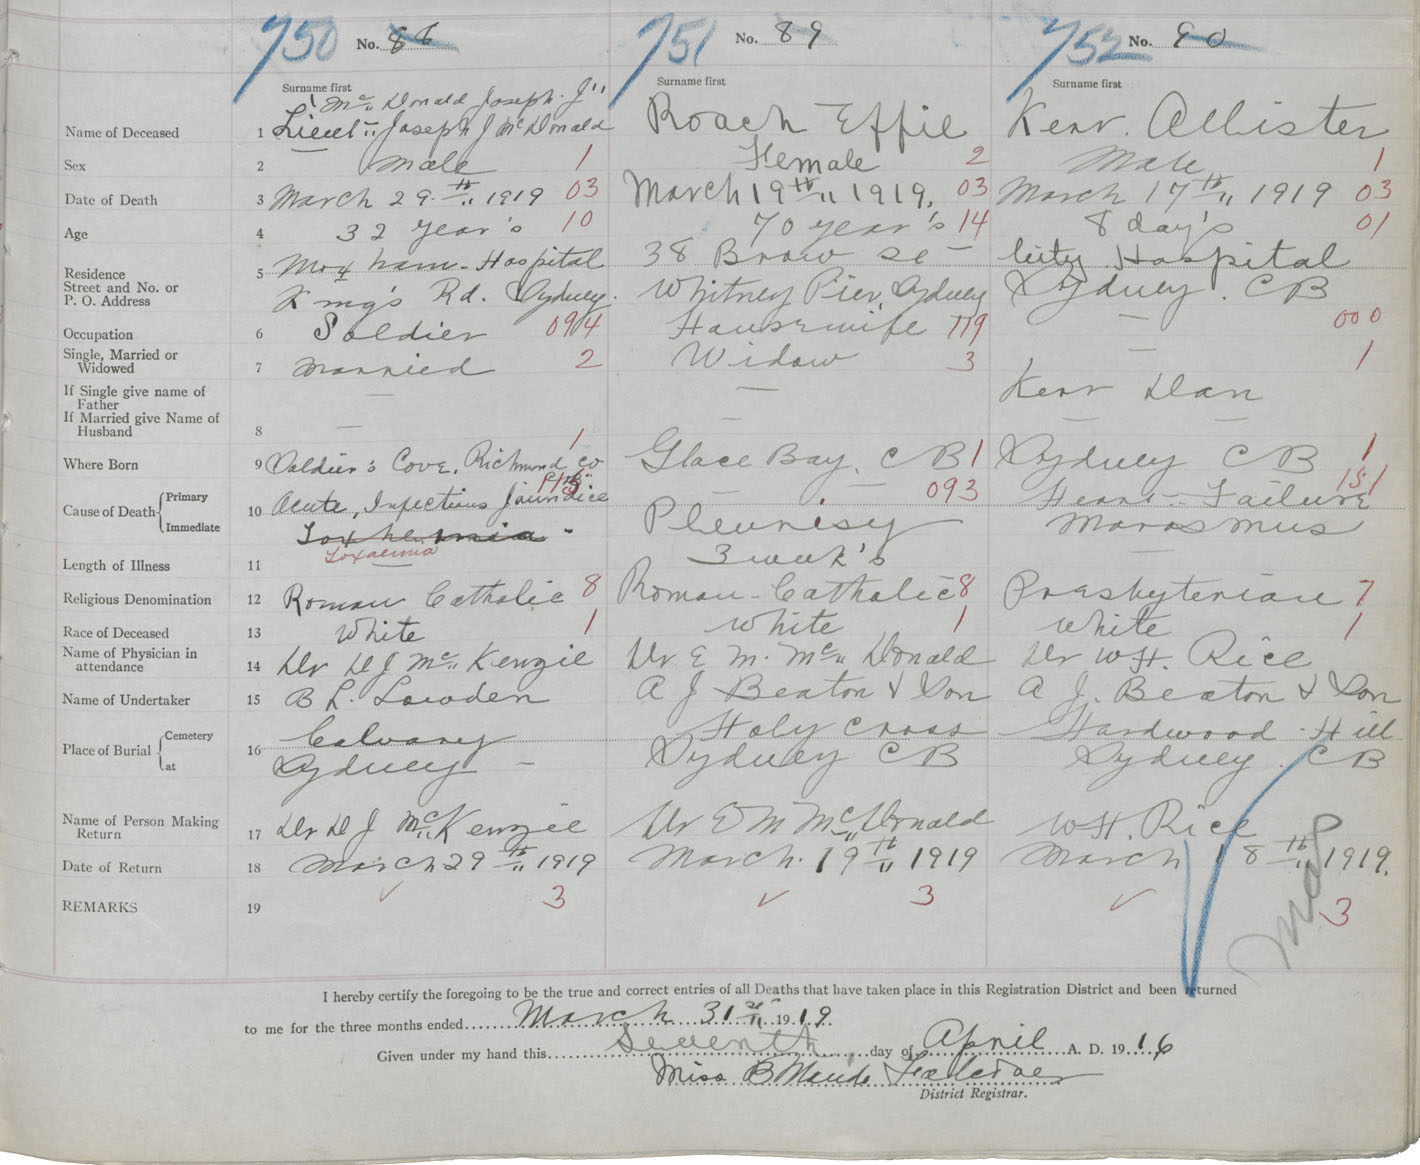 750 No. 88 751 No. 89 752 No. 90
Surname first Surname first Surname first
Mc Donald Joseph. J"
Name of Deceased 1 Lieut Joseph J McDonald Roach Effie Kerr. Allister
Sex 2 male 1 Female 2 Male 1
Date of Death 3 March 29th 1919 03 March 19th 1919. 03 March 17th 1919 03
Age 4 32 year's 10 70 year's 14 8 day's 01
Residence 5 Moxham-Hospital 38 Brow City Hospital
Street and No. or
P. O. Address King's Rd. Sydney. Whitney Pier, Sydney Sydney. CB
Occupation 6 Soldier 094 Housewife 119 — 000
Single, Married or
Widowed 7 married 2 Widow 3 — 1
If Single give name of
Father — — Kerr Dan
If Married give Name of
Husband 8 — — — —
Where Born 9 Soldier's Cove, Richmond Co 1 Glace Bay. CB 1 Sydney CB 1
Cause of Death Primary 10 Acute, Infectious Jaundice — — 093 Heart-Failure 151
Immediate Toxhemia Pleurisy Marasmus
Toxaemia
Length of Illness 11 — 3 week's —
Religious Denomination 12 Roman Catholic 8 Roman-Catholic 8 Presbyterian 7
Race of Deceased 13 White 1 White 1 White 1
Name of Physician in
attendance 14 Dr D J Mc Kenzie Dr E M. Mc Donald Dr WH. Rice
Name of Undertaker 15 B L. Lowden A J Beaton & Son A J. Beaton & Son
Place of Burial Cemetery 16 Calvary Holy Cross Hardwood-Hill
at Sydney — Sydney CB Sydney. CB
Name of Person Making
Return 17 Dr D J McKenzie Dr E M McDonald WH. Rice
Date of Return 18 March 29th 1919 March. 19th 1919 March 18th 1919.
REMARKS 19 3 3 3
I hereby certify the foregoing to be the true and correct entries of all Deaths that have taken place in this Registration District and been returned
to me for the three months ended March 31st 1919.
Given under my hand this Seventh day of April A. D. 1916
Miss B Maude
District Registrar.